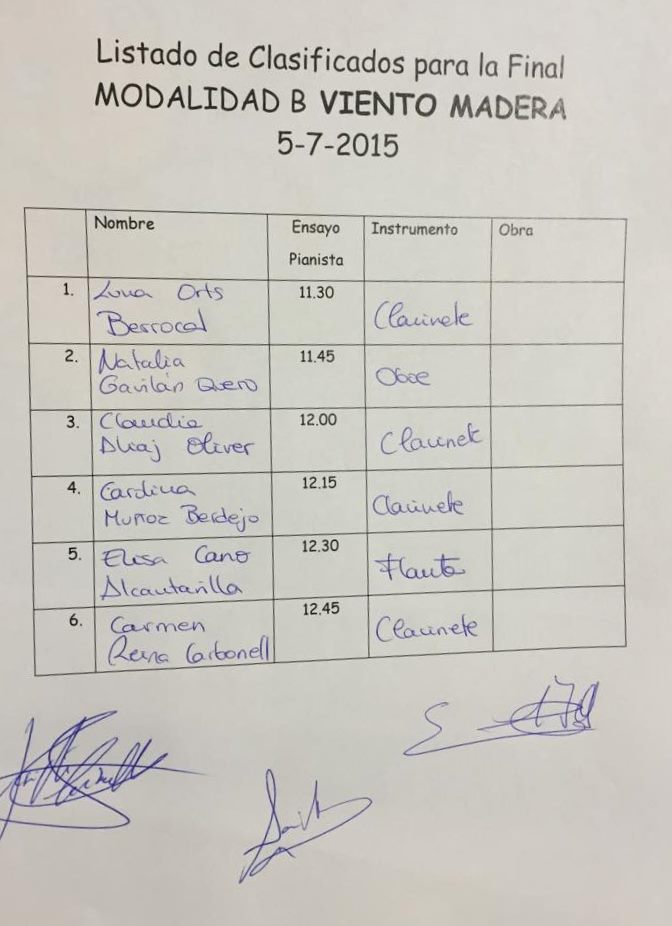 Listado de Clasificados para la Final
MODALIDAD B VIENTO MADERA
5-7-2015
Nombre Ensayo Pianista Instrumento Obra
1. Luna Orts 11.30 Clarinete
Berrocal
2. Natalia 11.45 Oboe
Gavilán Quero
3. Claudia 12.00 Clarinete
Oliver
4. Carolina 12.15 Clarinete
Muñoz Berdejo
5. Elisa Cano 12.30 Flauta
Alcantarilla
6. Carmen 12.45 Clarinete
Reina Carbonell